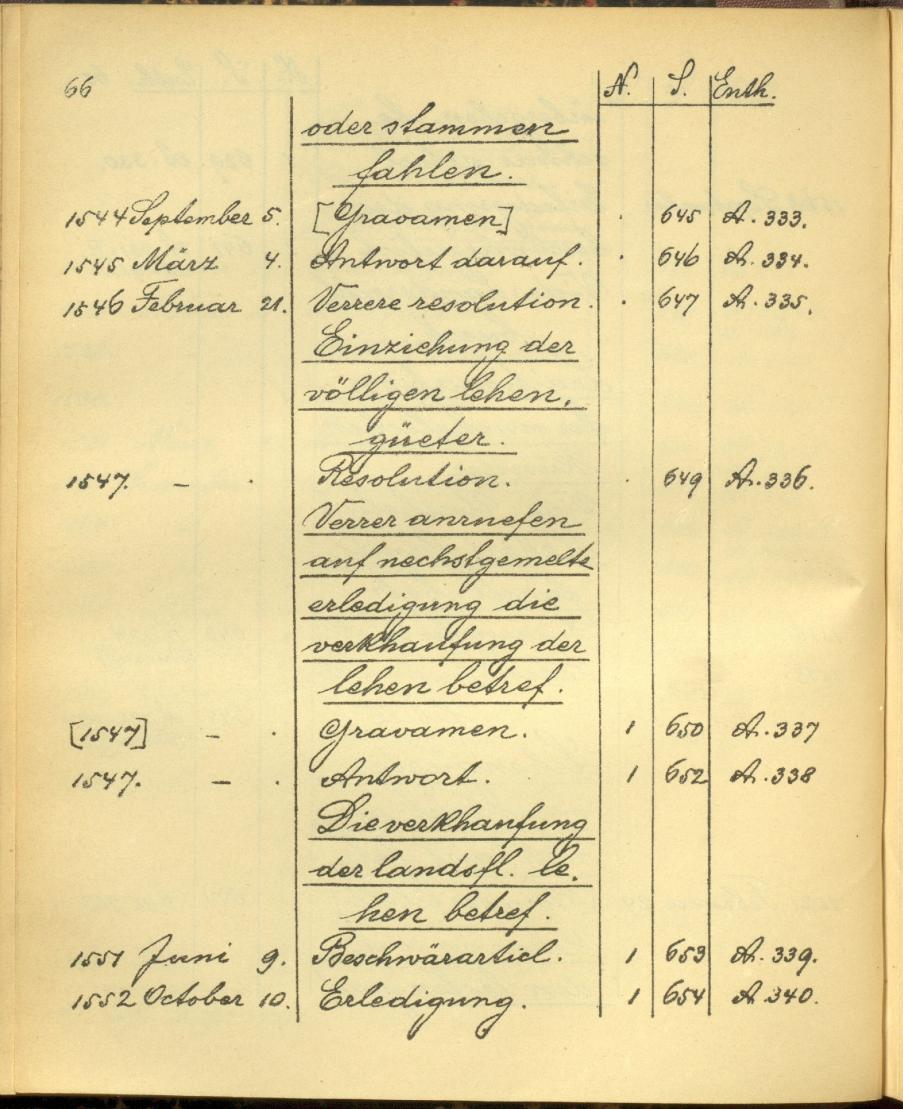 66 N. S. Enth.
oder stammen
fahlen.
1544 September 5. [Gravamen] . 645 A. 333.
1545 März 4. Antwort darauf. . 646 A. 334.
1546 Februar 21. Verrere resolution. . 647 A. 335.
Einziehung der
völligen lehen,
güeter.
1547. — . Resolution. . 649 A. 336.
Verrer anruefen
auf nechstgemelte
erledigung die
verkhaufung der
lehen betref.
[1547] — . Gravamen. 1 650 A. 337
1547. — . Antwort. 1 652 A. 338
Die verkhaufung
der landsfl. le,
hen betref.
1551 Juni 9. Beschwärarticl. 1 653 A. 339.
1552 October 10. Erledigung. 1 654 A. 340.